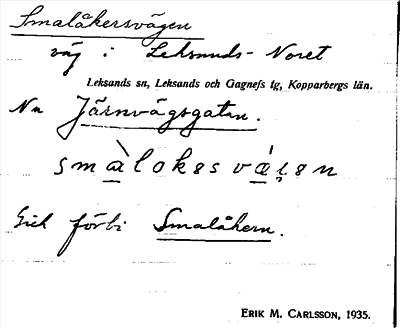 Smalåkersvägen
väg i Leksands-Noret
Leksands sn, Leksands och Gagnefs tg, Kopparbergs län.
Nu Järnvägsgatan.
smàlokəsvá̱i̯ən
Gick förbi Smalåkern.
ERIK M. CARLSSON, 1935.